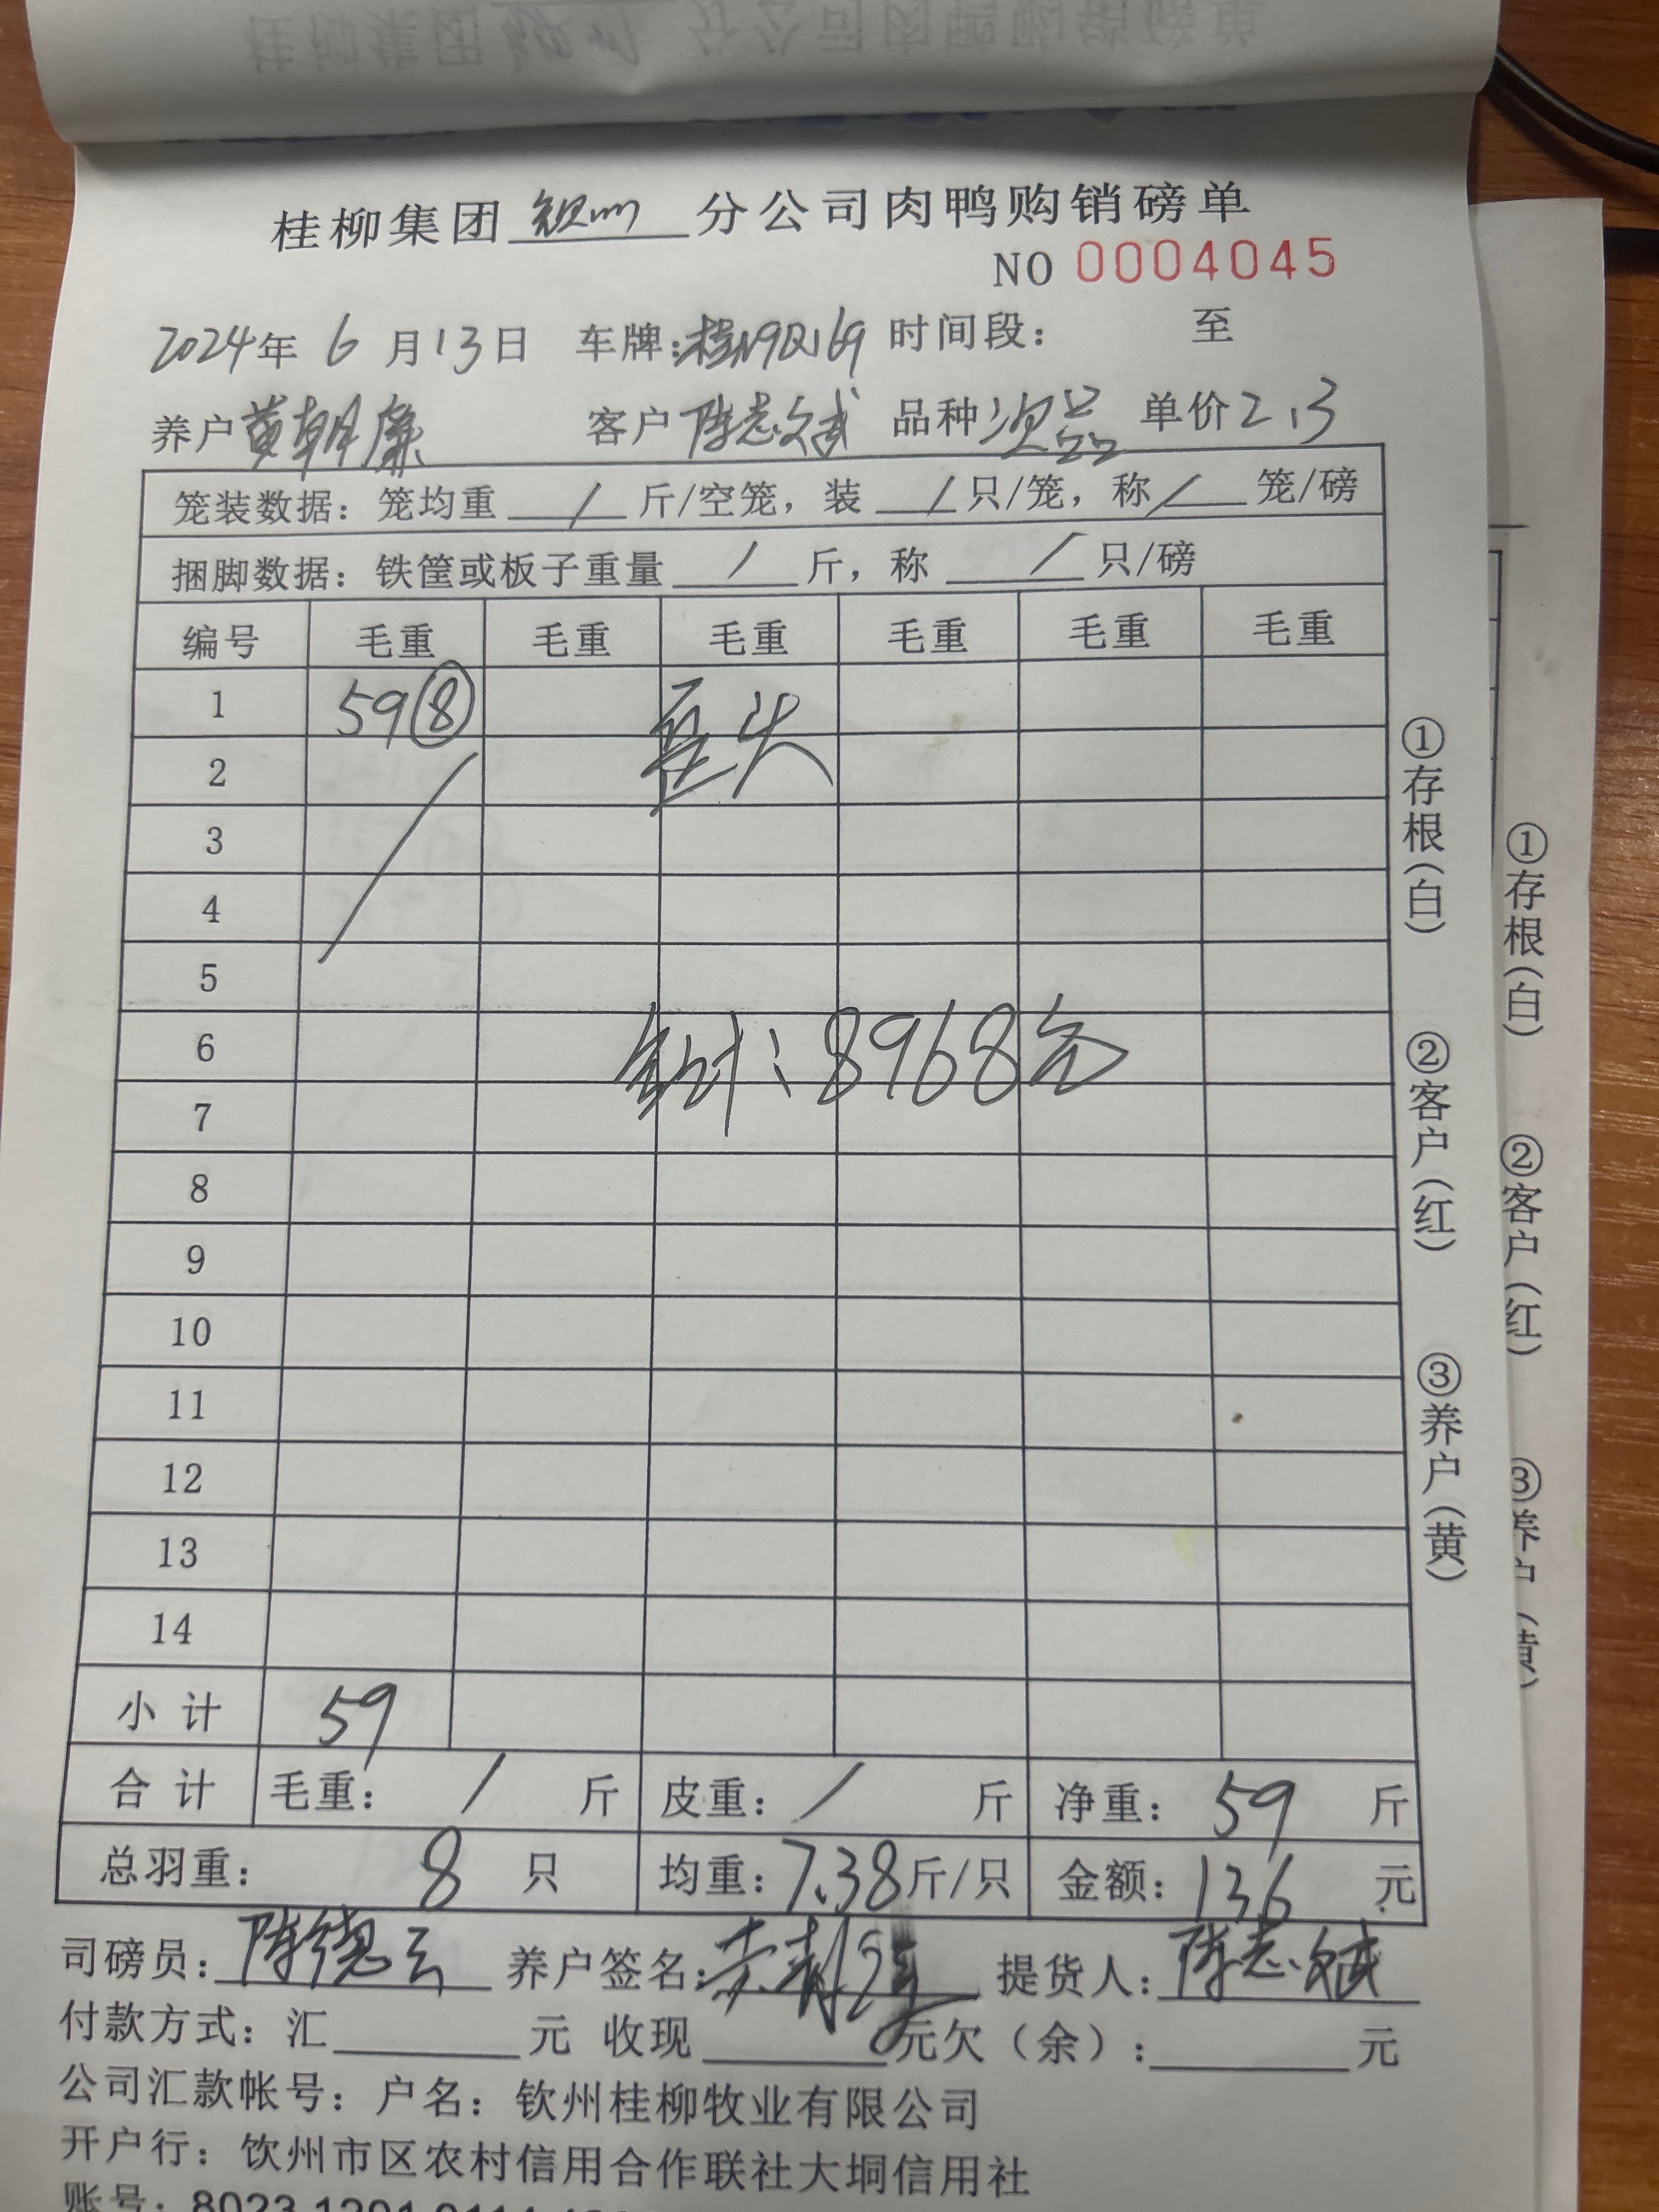 桂柳集团 钦州 分公司肉鸭购销磅单
NO 0004045
2024年 6 月13日 车牌:桂N9Q169 时间段: 至
养户 黄朝廉 客户 陈志斌 品种 次品 单价 2.3
笼装数据: 笼均重 / 斤/空笼, 装 / 只/笼, 称 / 笼/磅
捆脚数据: 铁筐或板子重量 / 斤, 称 / 只/磅
编号 毛重 毛重 毛重 毛重 毛重 毛重
1 59⑧
2
3
4
5
6 8968元
7
8
9
10
11
12
13
14
小 计 59
合 计 毛重: / 斤 皮重: / 斤 净重: 59 斤
总羽重: 8 只 均重: 7.38 斤/只 金额: 136 元
司磅员: 陈德云 养户签名: 提货人: 陈志斌
付款方式: 汇 元 收现 元欠(余): 元
公司汇款帐号: 户名: 钦州桂柳牧业有限公司
开户行: 钦州市区农村信用合作联社大垌信用社
账号: 8023 1201 0114
①存根(白) ②客户(红) ③养户(黄)
①存根(白) ②客户(红) ③养户(黄)